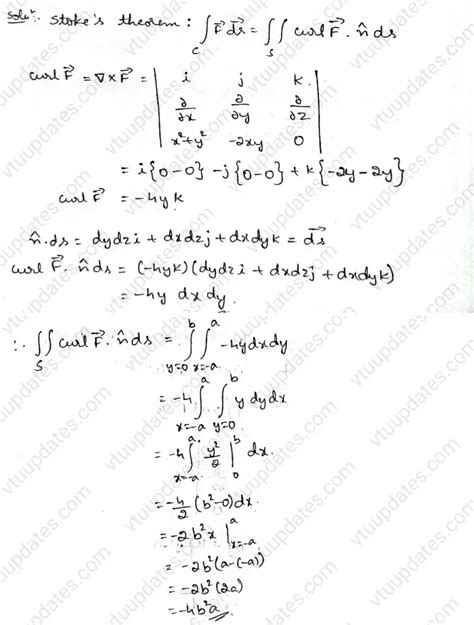 Solu^n:. Stoke's theorem : ∫_C F⃗ dr⃗ = ∬_S curl F⃗ . n̂ ds
curl F⃗ = ∇ × F⃗ = | i j k |
| ∂/∂x ∂/∂y ∂/∂z |
| x²+y² -2xy 0 |
= i{0-0} - j{0-0} + k{-2y-2y}
curl F⃗ = -4yk
n̂.ds = dydzi + dxdzj + dxdyk = ds⃗
curl F⃗ . n̂ds = (-4yk)(dydzi + dxdzj + dxdyk)
= -4y dxdy.
∴ ∬_S curl F⃗ . n̂ds = ∫_{y=0}^{b} ∫_{x=-a}^{a} -4y dxdy
= -4 ∫_{x=-a}^{a} ∫_{y=0}^{b} y dydx
= -4 ∫_{x=-a}^{a} y²/2 |_0^b dx.
= -4/2 (b²-0)dx
= -2b²x |_{x=-a}^{a}
= -2b²(a-(-a))
= -2b²(2a)
= -4b²a
vtuupdates.com